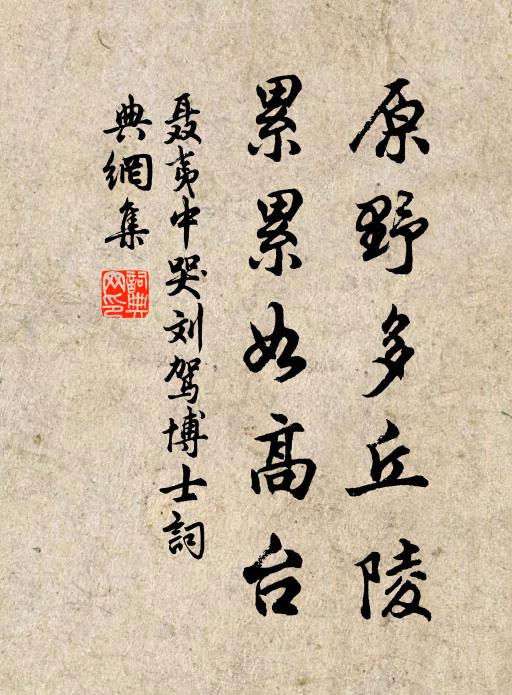 原野多丘陵
累累如高台
聂夷中哭刘驾博士詞
典網集
詞典網印